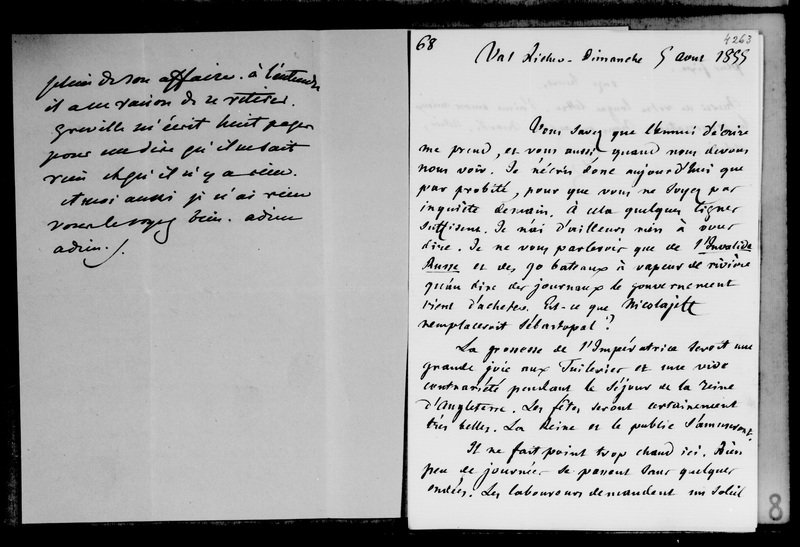 plein de son affaire. à l'entendre
il a eu raison de se retirer.
Greville m'écrit huit pages
pour me dire qu'il ne sait
rien et qu'il n'y a rien.
et moi aussi je n'ai rien
vous le voyez bien. adieu
adieu.
68
4263
Val Richer - Dimanche 5 août 1855
Vous savez que l'ennui d'écrire
me prend, et vous aussi, quand nous devons
nous voir. Je n'écris donc aujourd'hui que
par probité, pour que vous ne soyez pas
inquiète demain. À cela quelques lignes
suffisent. Je n'ai d'ailleurs rien à vous
dire. Je ne vous parlerois que de l'Invalide
Russe et des 90 bateaux à vapeur de rivière
qu'au dire des journaux le gouvernement
vient d'acheter. Est-ce que Nicolajeff
remplaceroit Sébastopol ?
La grossesse de l'Impératrice seroit une
grande joie aux Tuileries et une vive
contrariété pendant le séjour de la reine
d'Angleterre. Les fêtes seront certainement
très belles. La Reine et le public s'amuseront.
Il ne fait point trop chaud ici. Bien
peu de journées se passent sans quelques
ondées. Les laboureurs demandent un soleil
8